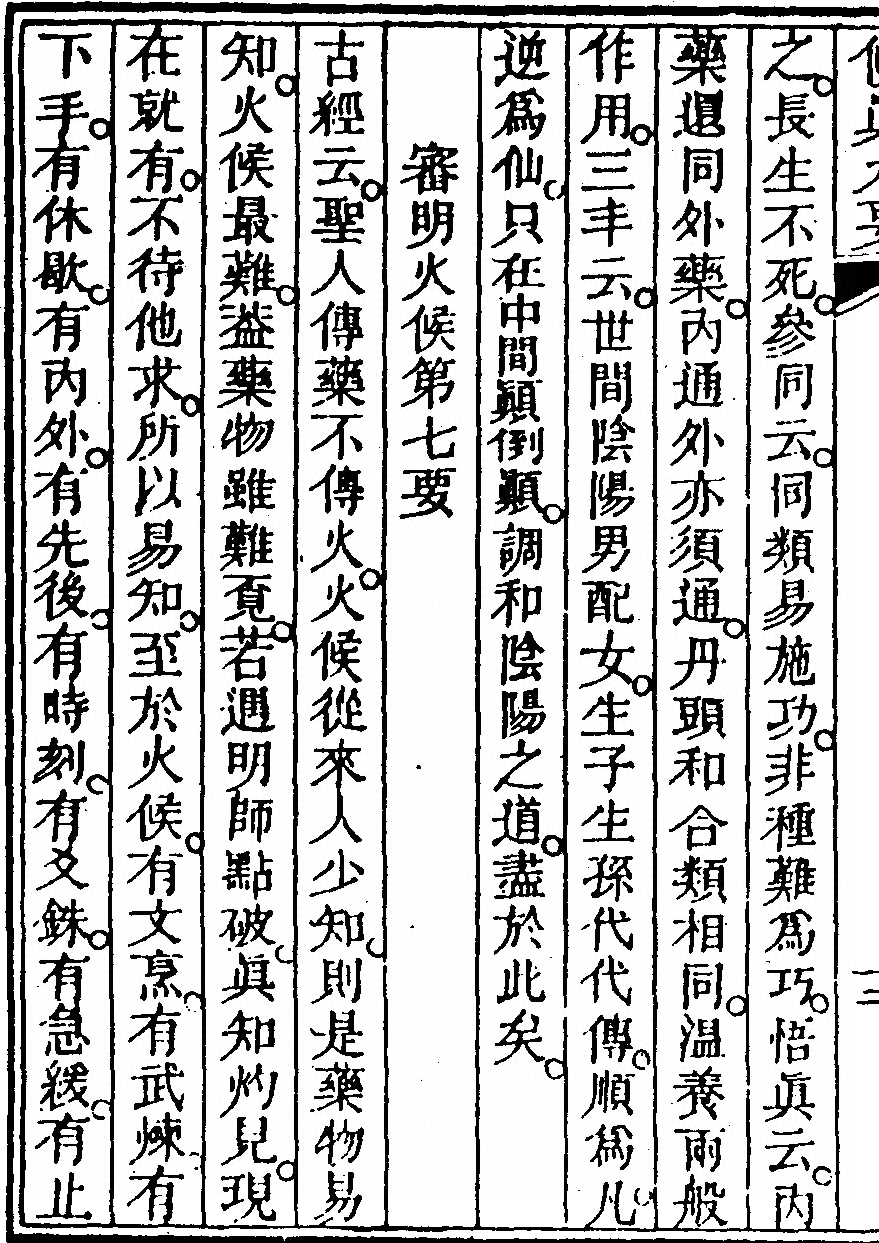 之長生不死參同云同類易施功非種難爲巧悟眞云內
藥還同外藥內通外亦須通丹頭和合類相同溫養兩般
作用三丰云世間陰陽男配女生子生孫代代傳順爲凡
逆爲仙只在中間顛倒顛調和陰陽之道盡於此矣
審明火候第七要
古經云聖人傳藥不傳火火候從來人少知則是藥物易
知火候最難葢藥物雖難覔若遇明師點破眞知灼見現
在就有不待他求所以易知至於火候有文烹有武煉有
下手有休歇有內外有先後有時刻有爻銖有急緩有止